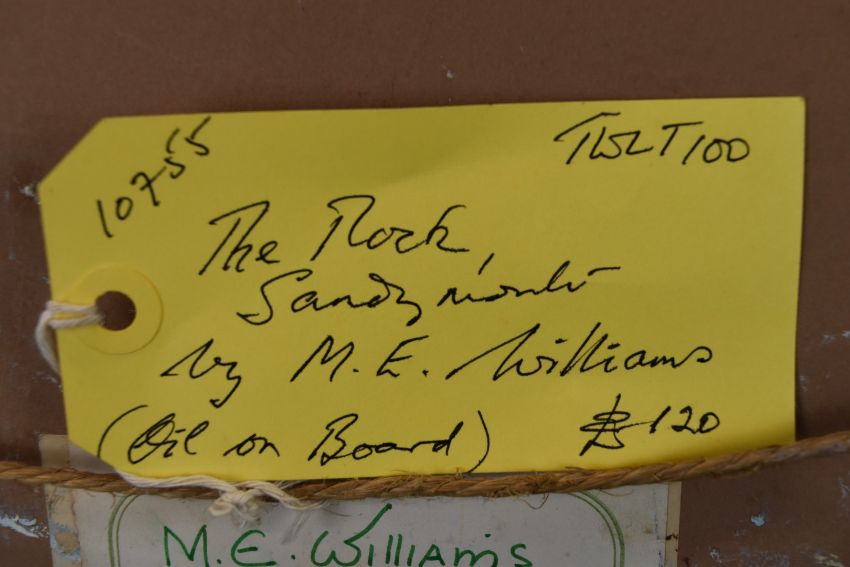 10755
TWLT100
The Rock,
Sandymouth
by M.E. Williams
(Oil on Board) £120
M.E. Williams